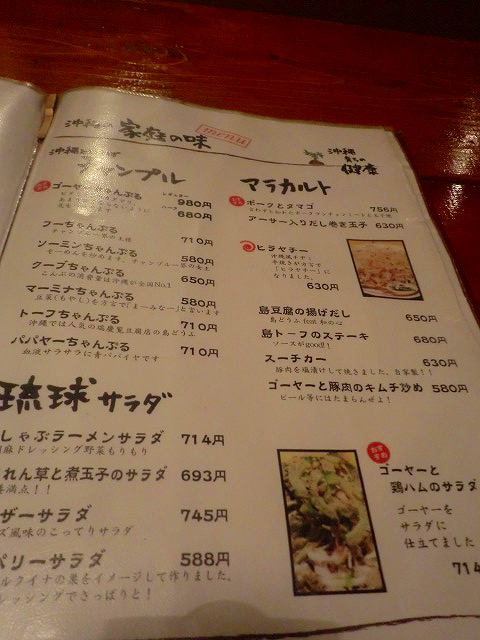 沖縄の 家庭の味
menu
沖縄 育ちの 健康
ゴーヤーちゃんぷる 980円
680円
フーちゃんぷる 710円
ソーミンちゃんぷる 580円
クーブちゃんぷる 650円
こんぶの消費量は沖縄が全国No.1
マーミナちゃんぷる 580円
豆菜(もやし)を方言で「まーみなー」と言います
トーフちゃんぷる 710円
パパヤーちゃんぷる 710円
血液サラサラに青パパイヤです
琉球 サラダ
しゃぶラーメンサラダ 714円
胡麻ドレッシング野菜もりもり
れん草と煮玉子のサラダ 693円
満点!!
ザーサラダ 745円
ズ風味のこってりサラダ
ベリーサラダ 588円
ルクイナの巣をイメージして作りました。
レッシングでさっぱりと!
アラカルト
ポークとタマゴ 756円
アーサー入りだし巻き玉子 630円
ヒラヤチー
沖縄風チヂミ
手抜きが方言で
「ヒラヤチー」に
なりました。
630円
島豆腐の揚げだし 650円
島どうふ feat 和の心
島トーフのステーキ 680円
ソースがgood!!
スーチカー 630円
豚肉を塩漬けして焼きました。自家製!!
ゴーヤーと豚肉のキムチ炒め 580円
ビール等にはたまらんぜよ!
おすすめ
ゴーヤーと
鶏ハムのサラダ
ゴーヤーを
サラダに
仕立てました
714